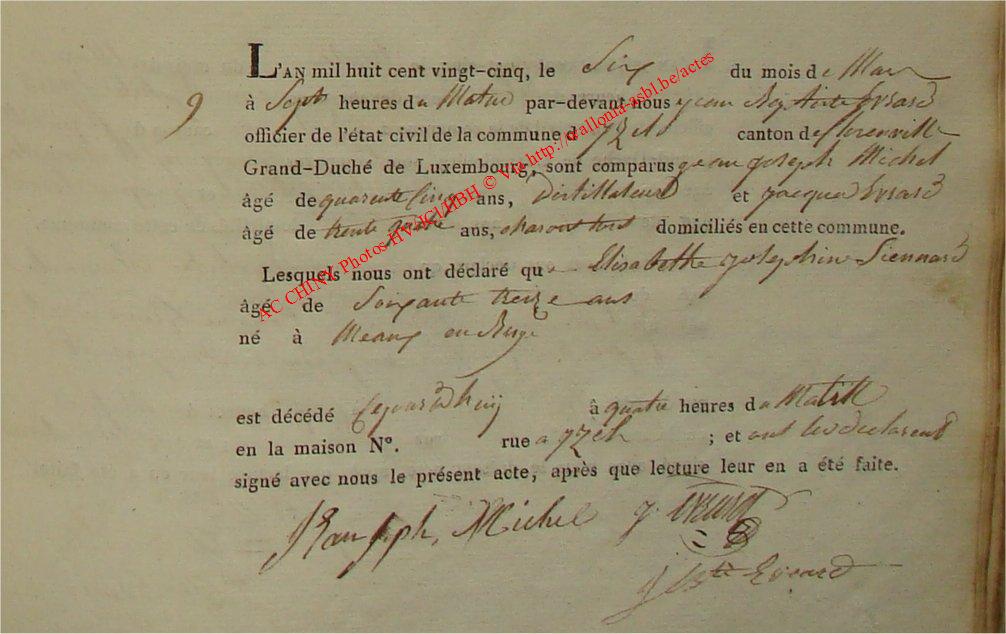 L'AN mil huit cent vingt-cinq, le Six du mois de Mars
9 à Sept heures du Matin par-devant nous jean Baptiste Evrard
officier de l'état civil de la commune d'yzel canton de florenville
Grand-Duché de Luxembourg, sont comparus jean joseph Michel
âgé de quarente Cinq ans, Distillateur et jacque Evrard
âgé de trente quatre ans, domiciliés en cette commune.
Lesquels nous ont déclaré que Elisabethe josephine
âgé de Soixante treize ans
né à Meaux en
est décédé à quatre heures du Matin
en la maison N°. rue a yzel ; et ont les declarent
signé avec nous le présent acte, après que lecture leur en a été faite.
Jean Joseph Michel j. Evrard
j Bte Evrard
AC CHINY Photos HV-JCI/HBH © Via http://wallonia-asbl.be/actes